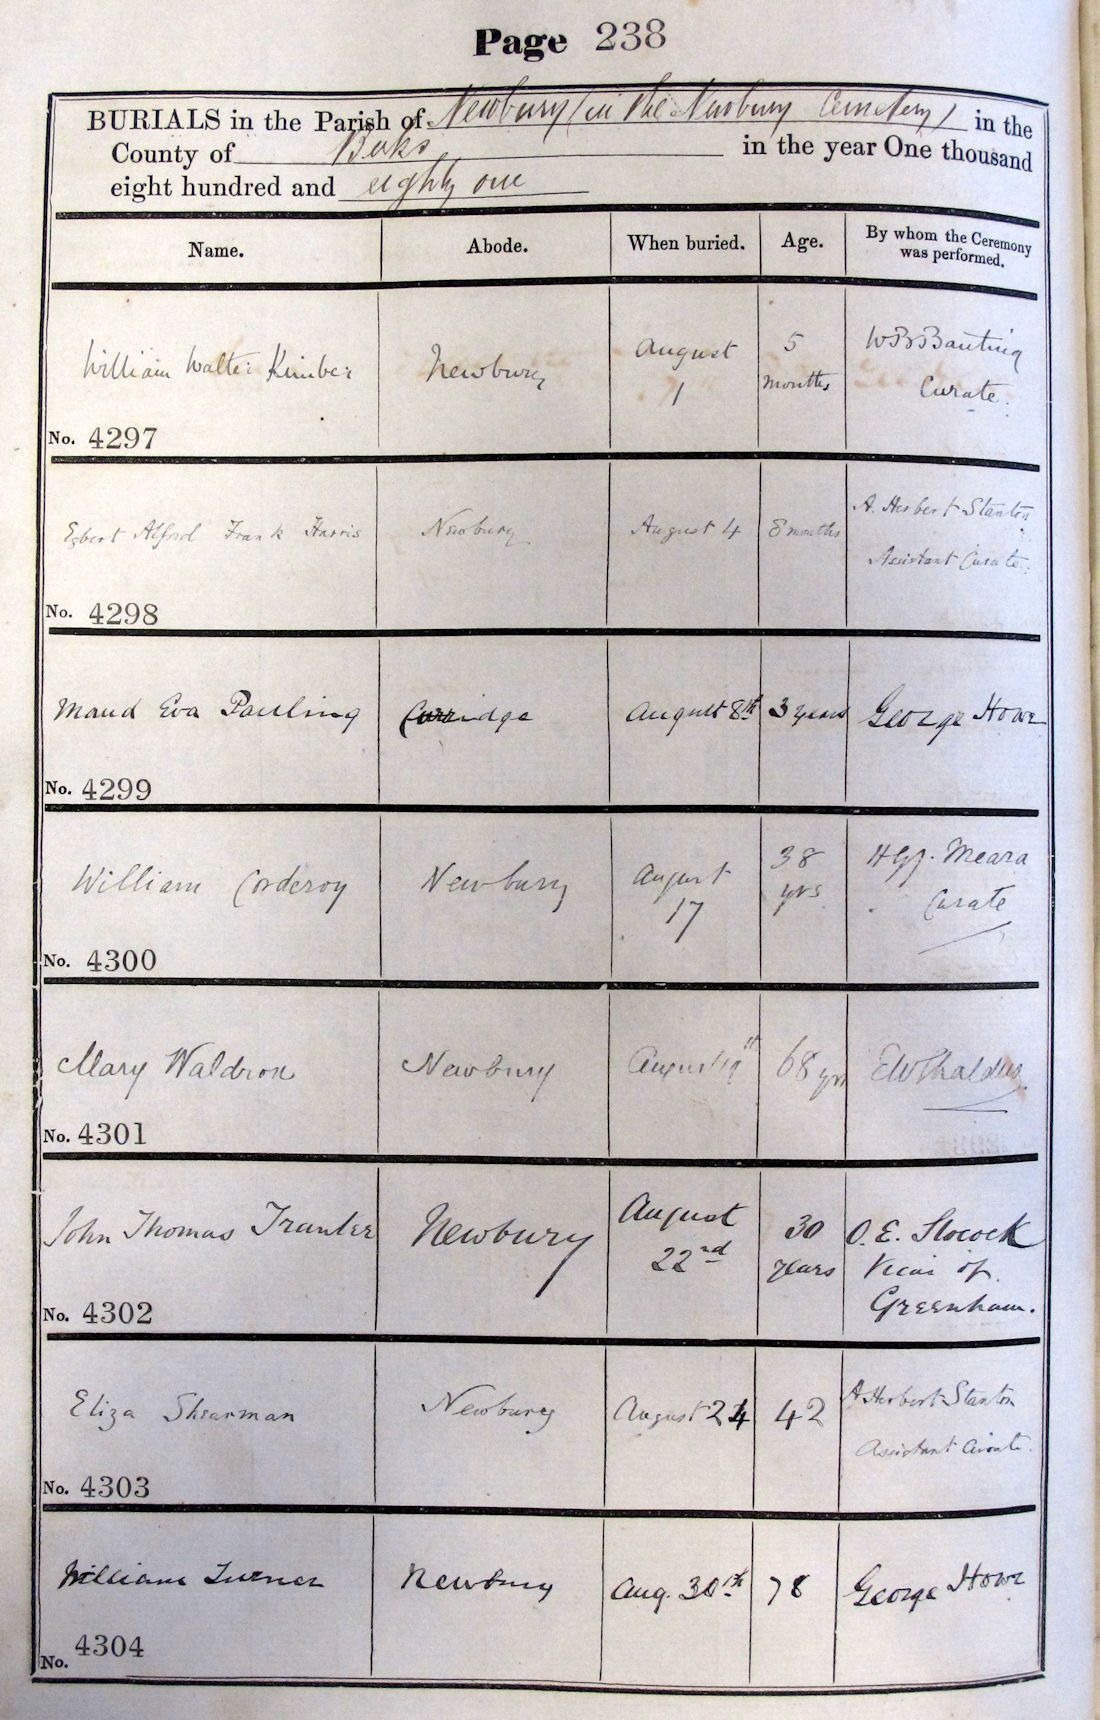 Page 238
BURIALS in the Parish of Newbury (in the Newbury Cemetery) in the
County of Berks in the year One thousand
eight hundred and eighty one
Name. Abode. When buried. Age. By whom the Ceremony
was performed.
William Walter Kimber Newbury August 5 W B Banting
1 months Curate.
No. 4297
Egbert Alfred Frank Harris Newbury August 4 8 months A. Herbert Stanton
Assistant Curate.
No. 4298
Maud Eva Pauling August 8th 3 years George Howe
No. 4299
William Corderoy Newbury August 38 Meara
17 yrs Curate
No. 4300
Mary Waldron Newbury August 68 yrs
No. 4301
John Thomas Tranter Newbury August 30 O. E. Slocock
22nd years Vicar of
Greenham.
No. 4302
Eliza Shearman Newbury August 24 42 A Herbert Stanton
Assistant Curate.
No. 4303
William Turner Newbury Aug. 30th 78 George Howe
No. 4304